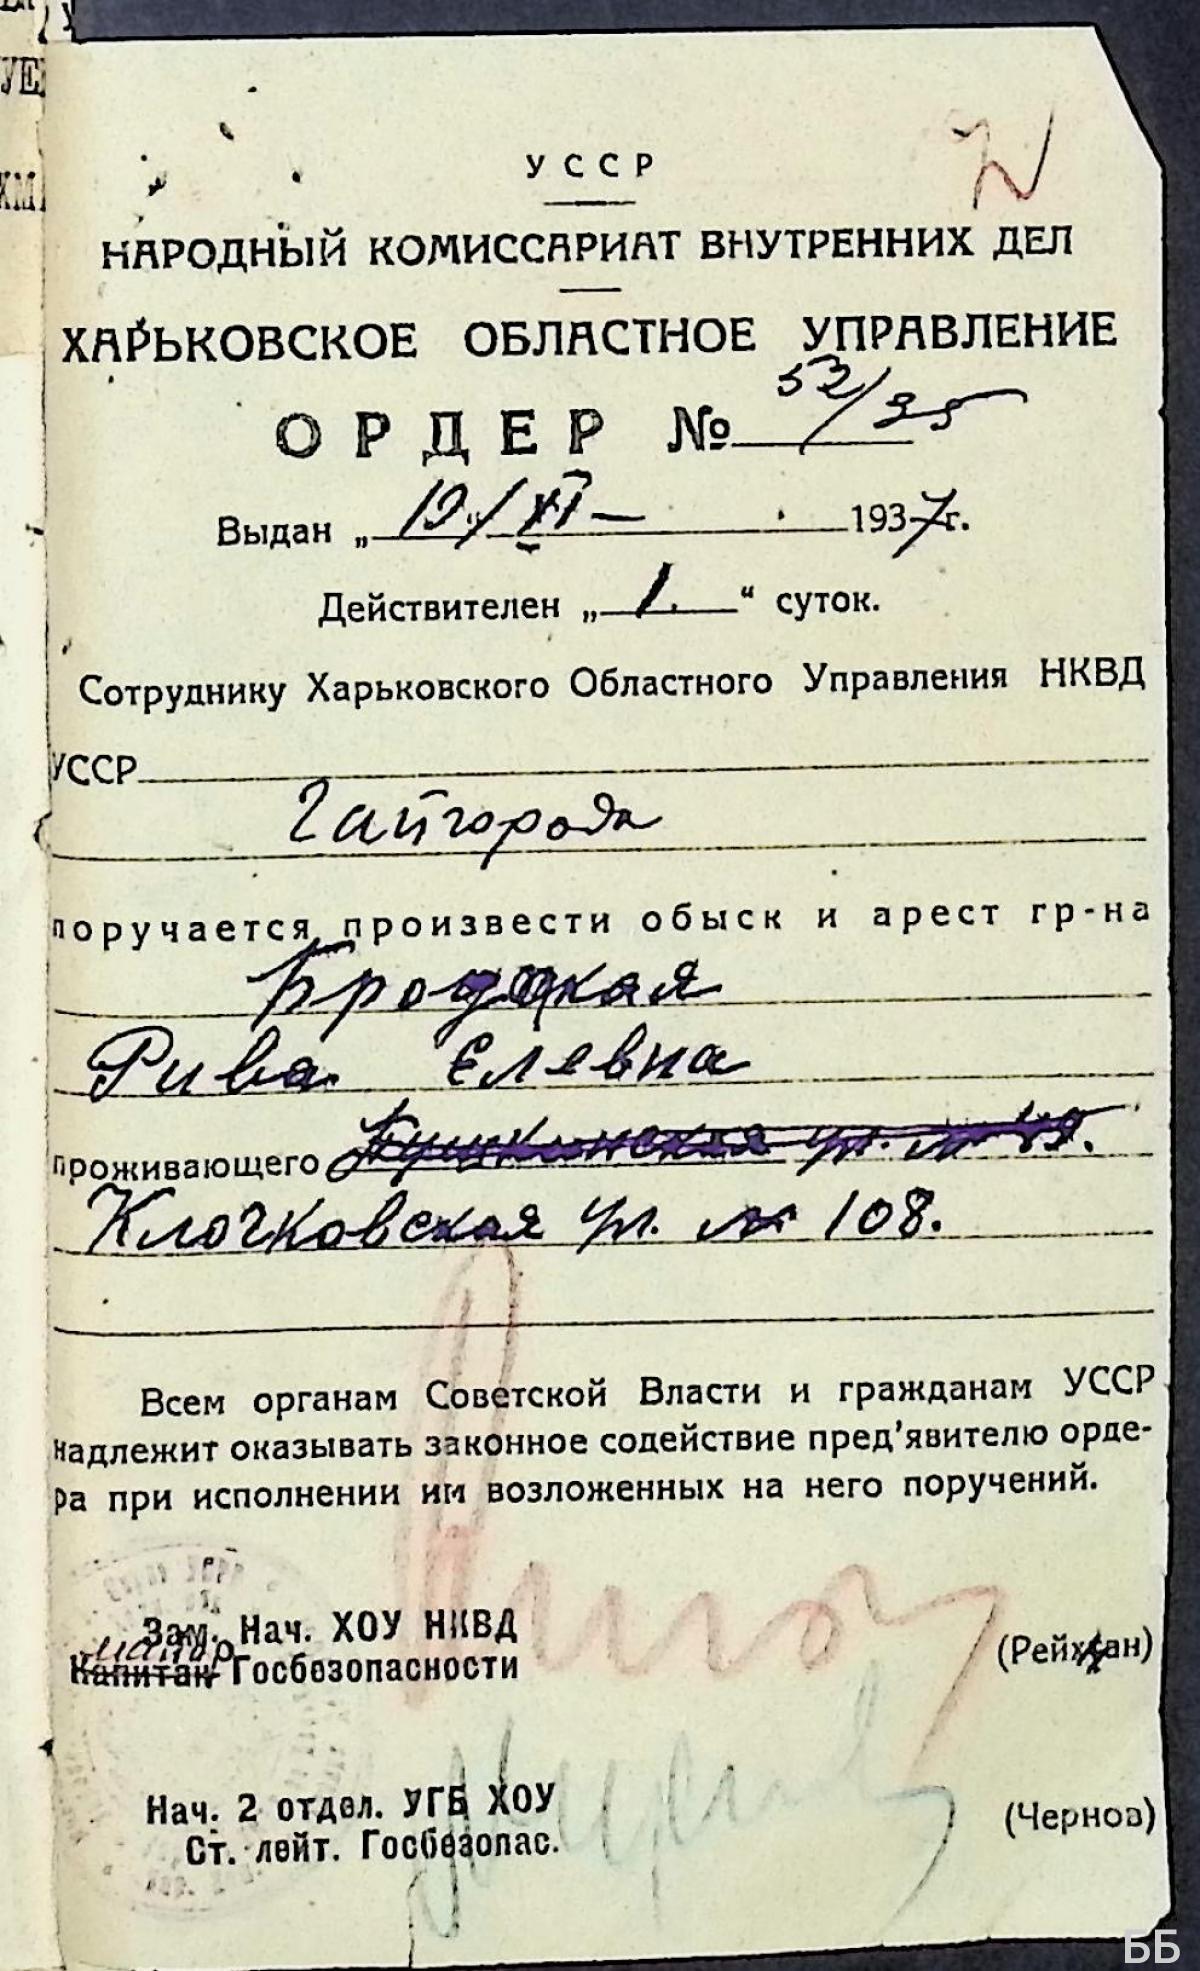 УССР
НАРОДНЫЙ КОМИССАРИАТ ВНУТРЕННИХ ДЕЛ
ХАРЬКОВСКОЕ ОБЛАСТНОЕ УПРАВЛЕНИЕ
ОРДЕР № 52/95
Выдан „19/XI— 1937г.
Действителен „1.“ суток.
Сотруднику Харьковского Областного Управления НКВД
УССР
Гайгорода
поручается произвести обыск и арест гр-на
Бродская
Рива Елевна
проживающего Пушкинская ул. № 49.
Клочковская ул. № 108.
Всем органам Советской Власти и гражданам УССР
надлежит оказывать законное содействие пред'явителю орде-
ра при исполнении им возложенных на него поручений.
Зам. Нач. ХОУ НКВД
майор
Капитан Госбезопасности
(Рейхман)
Нач. 2 отдел. УГБ ХОУ
Ст. лейт. Госбезопас.
(Чернов)
ББ